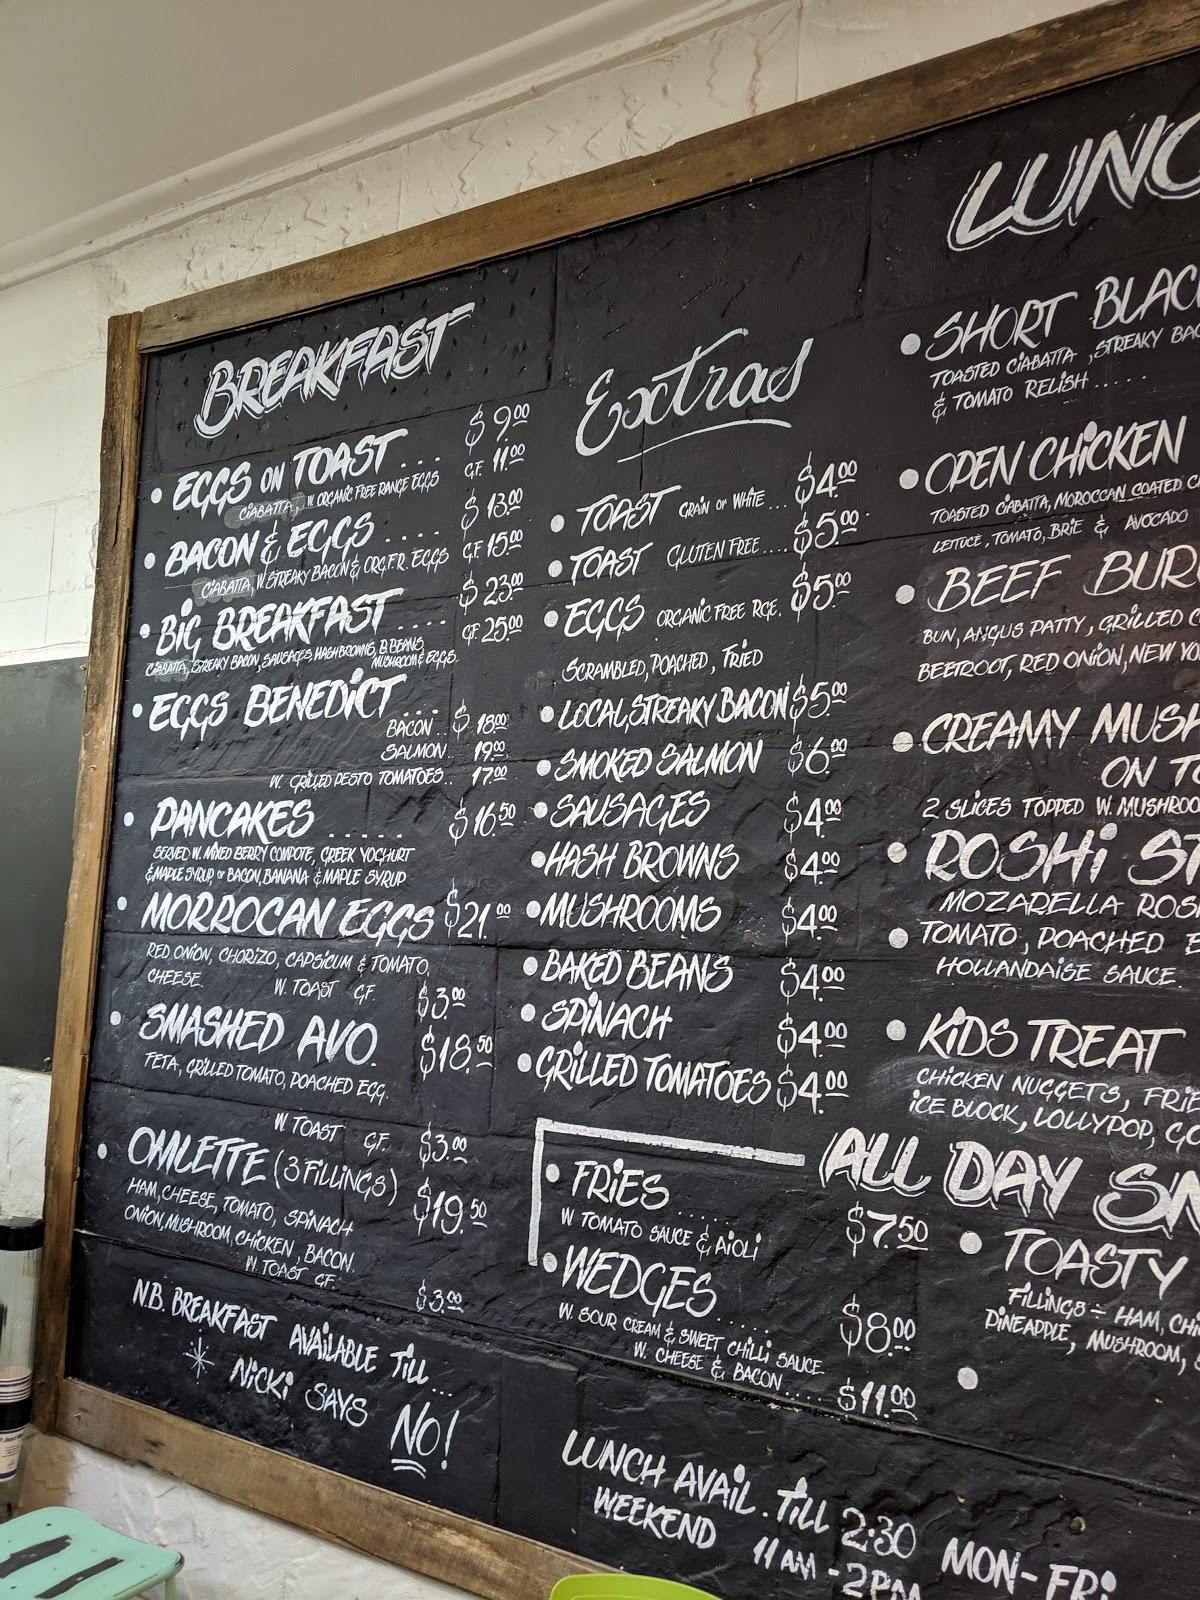 BREAKFAST
• EGGS ON TOAST .... $9.00
CIABATTA, W. ORGANIC FREE RANGE EGGS G.F. 11.00
• BACON & EGGS .... $13.00
CIABATTA, W. STREAKY BACON & ORG.F.R. EGGS G.F. 15.00
• BIG BREAKFAST .... $23.00
CIABATTA, STREAKY BACON, SAUSAGES, HASHBROWNS, B.BEANS, G.F. 25.00
MUSHROOM & EGGS.
• EGGS BENEDICT ...
BACON.. $18.00
SALMON.. 19.00
W. GRILLED PESTO TOMATOES.. 17.00
• PANCAKES ..... $16.50
SERVED W. MIXED BERRY COMPOTE, GREEK YOGHURT
& MAPLE SYRUP OR BACON, BANANA & MAPLE SYRUP
• MORROCAN EGGS $21.00
RED ONION, CHORIZO, CAPSICUM & TOMATO,
CHEESE. W. TOAST GF. $3.00
• SMASHED AVO. $18.50
FETA, GRILLED TOMATO, POACHED EGG.
W TOAST GF. $3.00
• OMLETTE (3 FILLINGS) $19.50
HAM, CHEESE, TOMATO, SPINACH
ONION, MUSHROOM, CHICKEN, BACON.
W. TOAST GF. $3.00
N.B. BREAKFAST AVAILABLE TILL...
NICKI SAYS NO!
Extras
• TOAST GRAIN OR WHITE... $4.00
• TOAST GLUTEN FREE.... $5.00
• EGGS ORGANIC FREE RGE. $5.00
SCRAMBLED, POACHED, FRIED
• LOCAL, STREAKY BACON $5.00
• SMOKED SALMON $6.00
• SAUSAGES $4.00
• HASH BROWNS $4.00
• MUSHROOMS $4.00
• BAKED BEANS $4.00
• SPINACH $4.00
• GRILLED TOMATOES $4.00
• FRIES ...... $7.50
W TOMATO SAUCE & AIOLI
• WEDGES ...... $8.00
W. SOUR CREAM & SWEET CHILLI SAUCE
W. CHEESE & BACON..... $11.00
LUNCH AVAIL. TILL 2:30 MON-FRI
WEEKEND 11AM - 2PM
LUNC
• SHORT BLAC
TOASTED CIABATTA, STREAKY BAC
& TOMATO RELISH.....
• OPEN CHICKEN
TOASTED CIABATTA, MOROCCAN COATED C
LETTUCE, TOMATO, BRIE & AVOCADO
• BEEF BUR
BUN, ANGUS PATTY, GRILLED C
BEETROOT, RED ONION, NEW YO
• CREAMY MUSH
ON TO
2 SLICES TOPPED W. MUSHROO
• ROSHI ST
MOZARELLA ROS
• TOMATO, POACHED E
HOLLANDAISE SAUCE.
• KIDS TREAT
CHICKEN NUGGETS, FRIE
ICE BLOCK, LOLLYPOP,
ALL DAY SN
• TOASTY
FILLINGS ÷ HAM, CHI
PINEAPPLE, MUSHROOM,
•